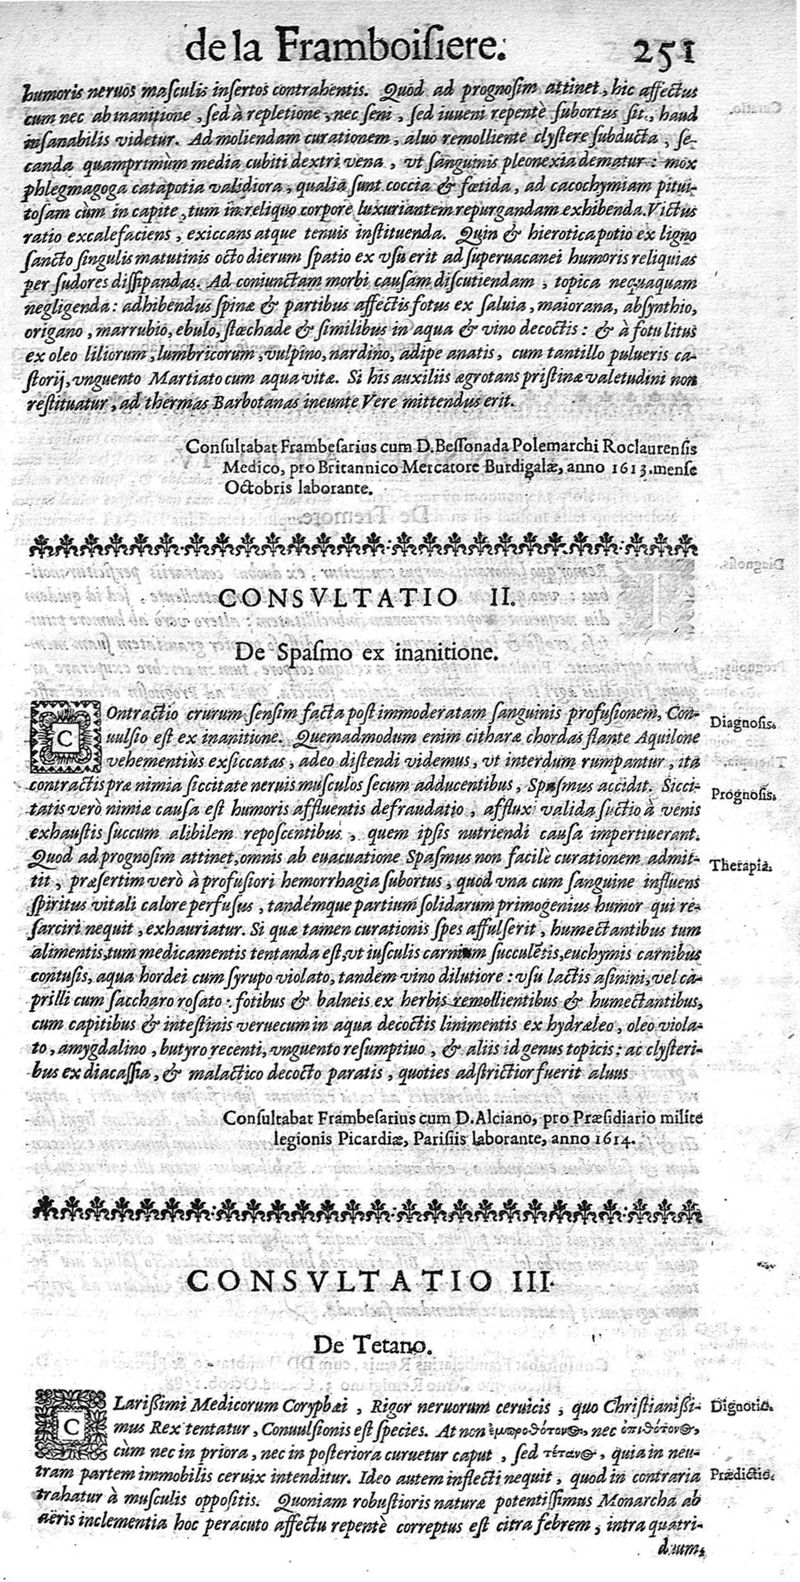 de la Framboisiere. 251
humoris neruos masculis insertos contrahentis. Quod ad prognosim attinet, hic affectus
cum nec ab inanitione, sed à repletione, nec seni, sed iuueni repentè subortus sit, haud
insanabilis videtur. Ad moliendam curationem, aluo remolliente clystere subducta, se-
canda quamprimùm media cubiti dextri vena, vt sanguinis pleonexia dematur: mox
phlegmagoga catapotia validiora, qualia sunt coccia & fœtida, ad cacochymiam pitui-
tosam cùm in capite, tum in reliquo corpore luxuriantem repurgandam exhibenda. Victus
ratio excalefaciens, exiccans atque tenuis instituenda. Quin & hierotica potio ex ligno
sancto singulis matutinis octo dierum spatio ex vsu erit ad superuacanei humoris reliquias
per sudores dissipandas. Ad coniunctam morbi causam discutiendam, topica nequaquam
negligenda: adhibendus spinæ & partibus affectis fotus ex saluia, maiorana, absynthio,
origano, marrubio, ebulo, stœchade & similibus in aqua & vino decoctis: & à fotu litus
ex oleo liliorum, lumbricorum, vulpino, nardino, adipe anatis, cum tantillo pulueris ca-
storij, vnguento Martiato cum aqua vitæ. Si his auxiliis ægrotans pristinæ valetudini non
restituatur, ad thermas Barbotanas ineunte Vere mittendus erit.
Consultabat Frambesarius cum D. Bessonada Polemarchi Roclaurensis
Medico, pro Britannico Mercatore Burdigalæ, anno 1613. mense
Octobris laborante.
CONSVLTATIO II.
De Spasmo ex inanitione.
COntractio crurum sensim facta post immoderatam sanguinis profusionem, Con-
uulsio est ex inanitione. Quemadmodum enim citharæ chordas flante Aquilone
vehementiùs exsiccatas, adeo distendi videmus, vt interdum rumpantur, ita
contractis præ nimia siccitate neruis musculos secum adducentibus, Spasmus accidit. Sicci-
tatis verò nimiæ causa est humoris affluentis defraudatio, affluxꝰ valida suctio à venis
exhaustis succum alibilem reposcentibus, quem ipsis nutriendi causa impertiuerant.
Quod ad prognosim attinet, omnis ab euacuatione Spasmus non facilè curationem admit-
tit, præsertim verò à profusiori hemorrhagia subortus, quod vna cum sanguine influens
spiritus vitali calore perfusus, tandémque partium solidarum primogenius humor qui re-
sarciri nequit, exhauriatur. Si quæ tamen curationis spes affulserit, humectantibus tum
alimentis, tum medicamentis tentanda est, vt iusculis carnium succulētis, euchymis carnibus
contusis, aqua hordei cum syrupo violato, tandem vino dilutiore: vsu lactis asinini, vel ca-
prilli cum saccharo rosato: fotibus & balneis ex herbis remollientibus & humectantibus,
cum capitibus & intestinis veruecum in aqua decoctis linimentis ex hydræleo, oleo viola-
to, amygdalino, butyro recenti, vnguento resumptiuo, & aliis id genus topicis: ac clysteri-
bus ex diacassia, & malactico decocto paratis, quoties adstrictior fuerit aluus
Diagnosis.
Prognosis.
Therapia.
Consultabat Frambesarius cum D. Alciano, pro Præsidiario milite
legionis Picardiæ, Parisiis laborante, anno 1614.
CONSVLTATIO III.
De Tetano.
CLarissimi Medicorum Coryphæi, Rigor neruorum ceruicis, quo Christianissi-
mus Rex tentatur, Conuulsionis est species. At non ἐμπροθότονος, nec ὀπιθότονος,
cùm nec in priora, nec in posteriora curuetur caput, sed τέτανος, quia in neu-
tram partem immobilis ceruix intenditur. Ideo autem inflecti nequit, quod in contraria
trahatur à musculis oppositis. Quoniam robustioris naturæ potentissimus Monarcha ab
aëris inclementia hoc peracuto affectu repentè correptus est citra febrem, intra quatri-
duum,
Dignotio.
Prædictio.